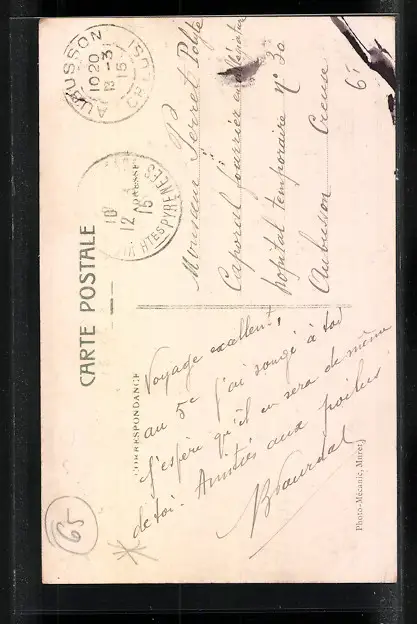 CARTE POSTALE
CORRESPONDANCE
AUBUSSON
1020
13-3
15
CREUSE
10
12 3
15
HTES PYRENEES
Monsieur Perret
Caporal fourrier
hopital temporaire N° 30
Aubusson Creuse
61
Voyage excellent,
au 5e j'ai songé à toi
J'espère qu'il en sera de même
de toi. Amitiés aux poilus
Photo-Mécanic, Muret
65